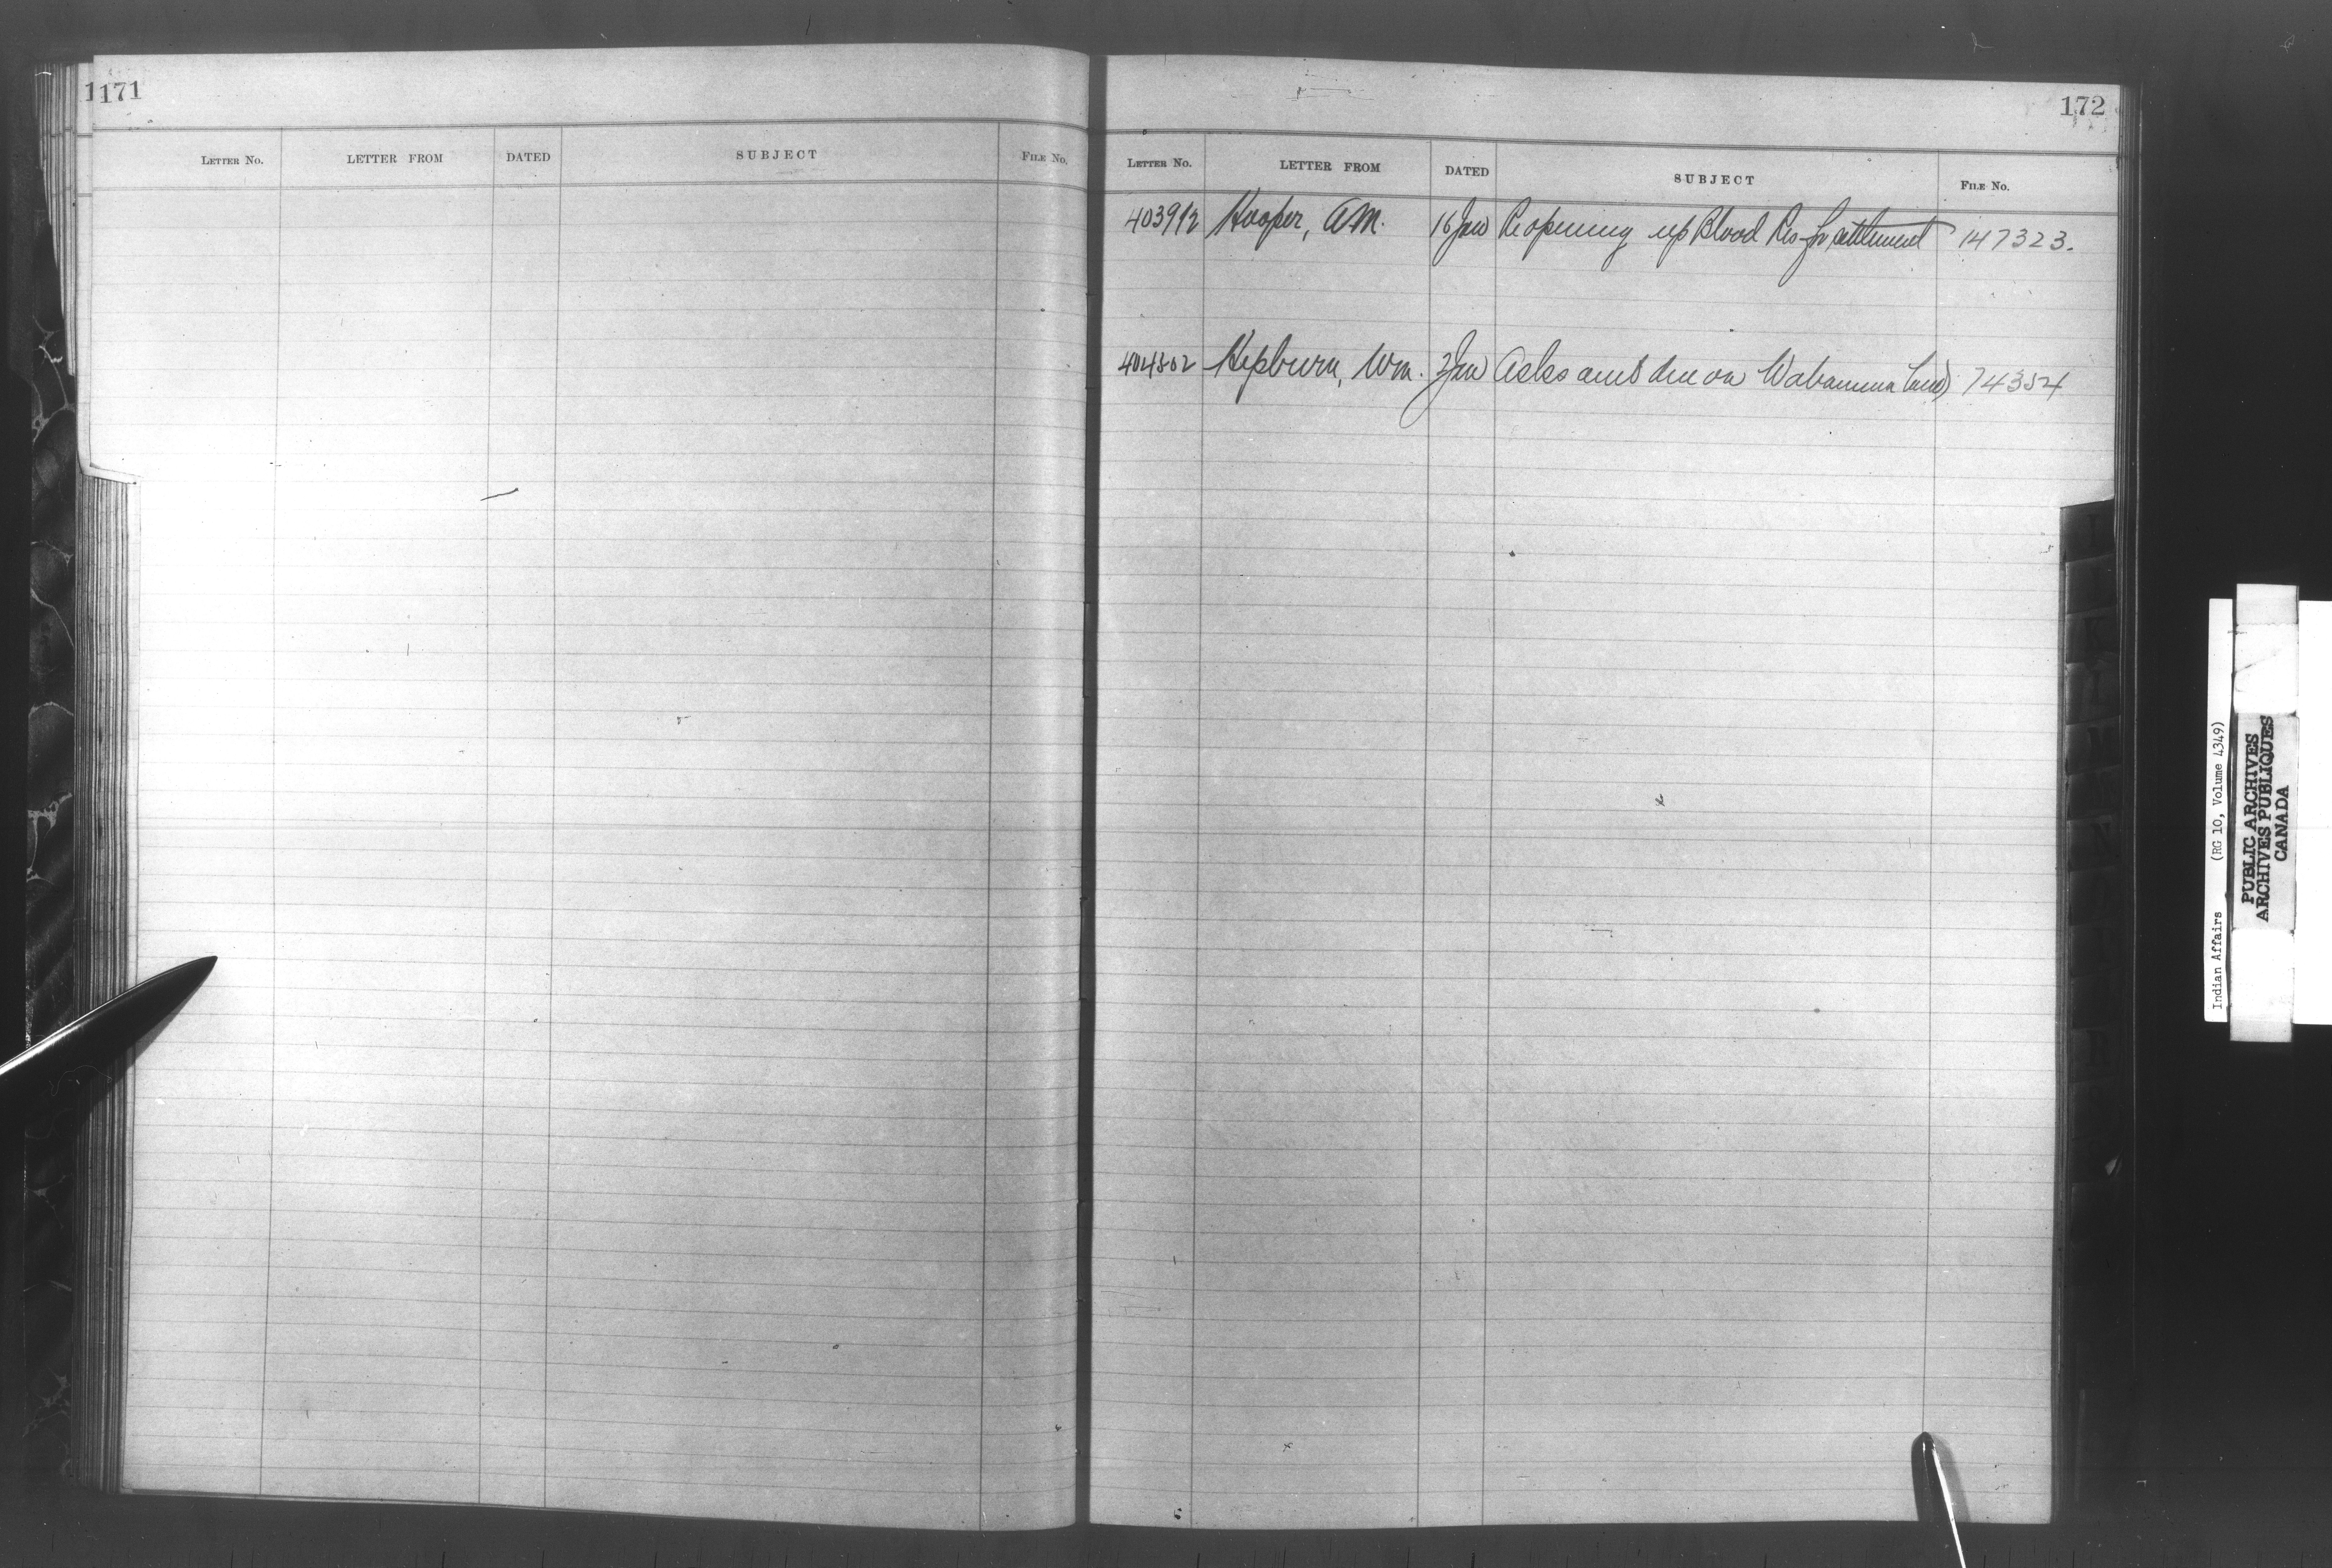 1171
LETTER NO. LETTER FROM DATED SUBJECT FILE NO.
172
LETTER NO. LETTER FROM DATED SUBJECT FILE NO.
403912 Hooper, A.M. 16 Jan Re opening up Blood Res for settlement 147323.
404502 Hepburn, Wm. 2 Jan Asks amt due on Wabamun Land 74354
Indian Affairs (RG 10, Volume 4349)
PUBLIC ARCHIVES
ARCHIVES PUBLIQUES
CANADA